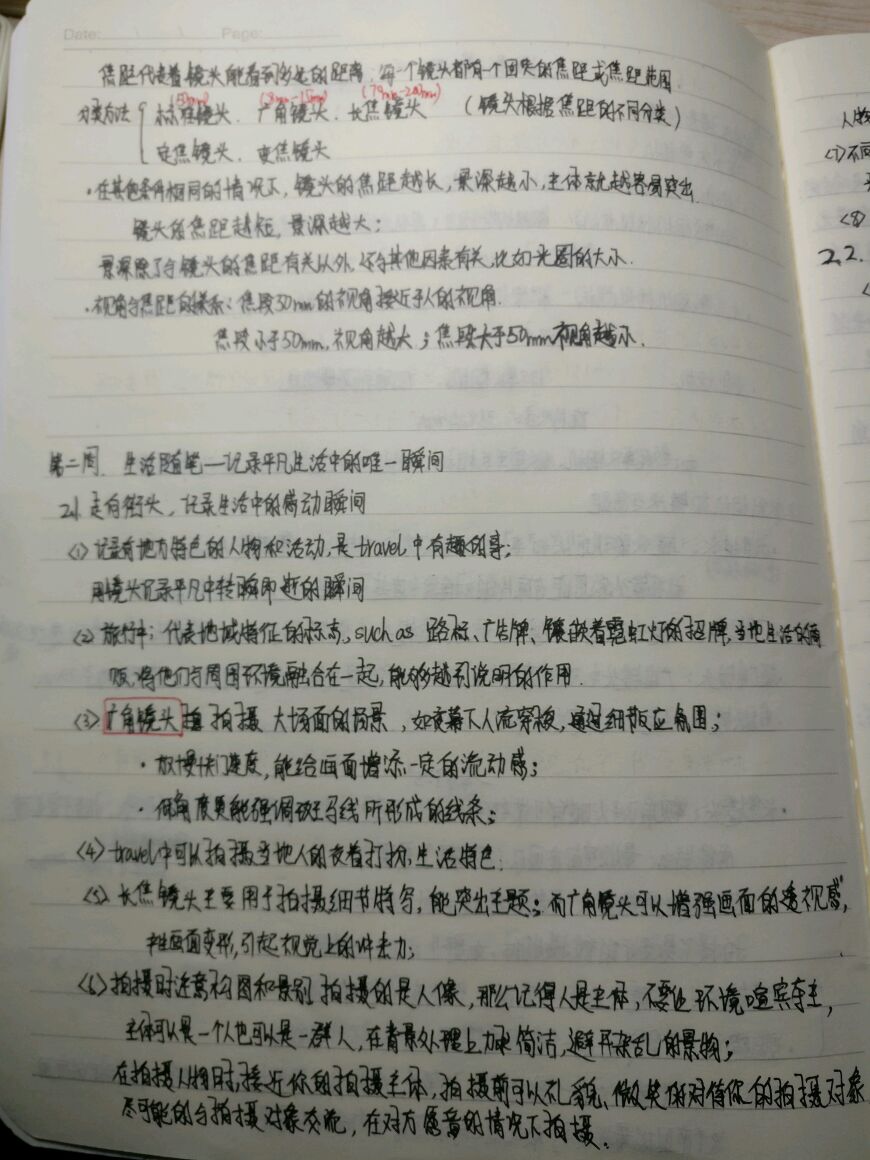 Date: Page:
焦距代表着镜头能看到多远的距离，每一个镜头都有一个固定的焦距或焦距范围.
(50mm)
分类方法 { 标准镜头、广角镜头、长焦镜头 （镜头根据焦距的不同分类）
定焦镜头、变焦镜头
·在其他条件相同的情况下，镜头的焦距越长，景深越小，主体就越容易突出.
镜头的焦距越短，景深越大；
景深除了与镜头的焦距有关以外，还与其他因素有关，比如光圈的大小.
·视角与焦距的关系：焦段50mm的视角接近于人的视角.
焦段小于50mm，视角越大；焦段大于50mm视角越小.
第二周. 生活随笔—记录平凡生活中的唯一瞬间
2.1 走向街头，记录生活中的感动瞬间
<1> 记录有地方特色的人物和活动，是travel中有趣的事；
用镜头记录平凡中转瞬即逝的瞬间
<2> 旅行中：代表地域特征的标志，such as 路标、广告牌、镶嵌着霓虹灯的招牌，当地生活的商
贩，将他们与周围环境融合在一起，能够起到说明的作用.
<3> 广角镜头 拍摄 大场面的场景，如夜幕下人流穿梭，通过细节反应氛围；
·放慢快门速度，能给画面增添一定的流动感；
·低角度更能强调斑马线所形成的线条；
<4> travel中可以拍摄当地人的衣着打扮，生活特色.
<5> 长焦镜头主要用于拍摄细节特写，能突出主题；而广角镜头可以增强画面的透视感，
画面变形，引起视觉上的冲击力；
<6> 拍摄时注意构图和景别 拍摄的是人像，那么记得人是主体，不要让环境喧宾夺主，
主体可以是一个人也可以是一群人，在背景处理上力求简洁，避开杂乱的景物；
在拍摄人物时，接近你的拍摄主体，拍摄前可以礼貌、微笑的对待你的拍摄对象
尽可能的与拍摄对象交流，在对方愿意的情况下拍摄.
人物
<7> 不同
<8>
2.2.